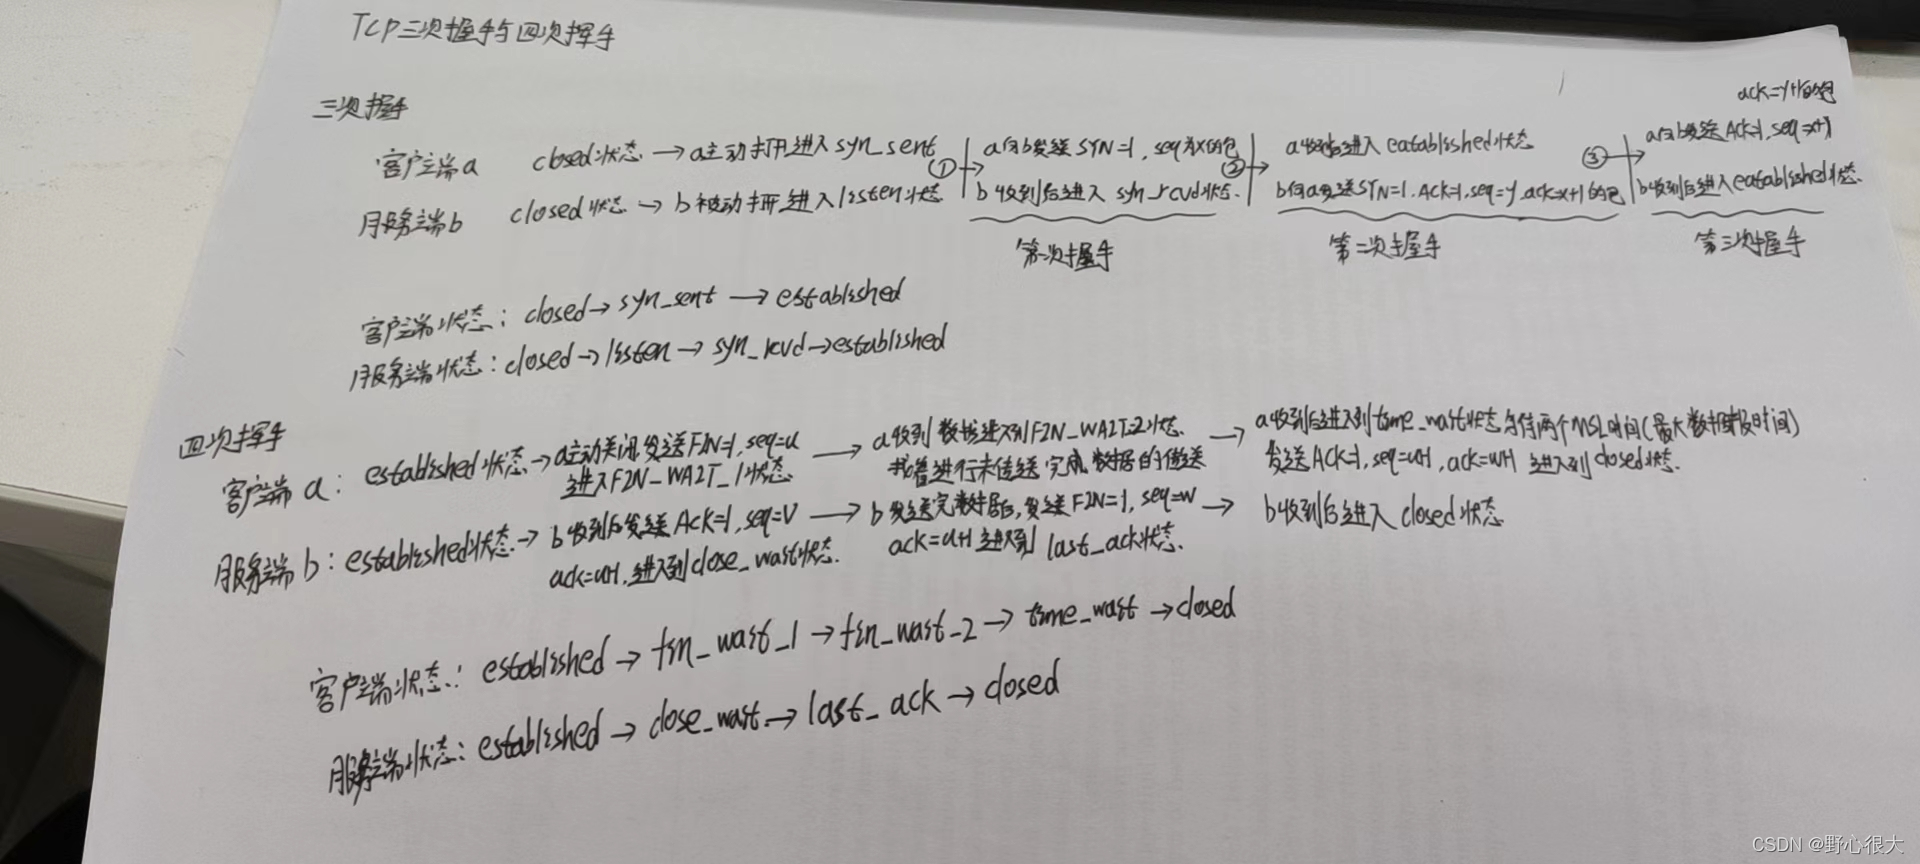 TCP三次握手与四次挥手
三次握手
ack=y+1的包
客户端a closed状态→a主动打开进入syn_sent ① → a向b发送SYN=1,seq为x的包 ② → a收到后进入eatablisshed状态 ③ → a向b发送Ack=1,seq=x+1
服务端b closed状态→b被动打开进入listen状态 b收到后进入syn_rcvd状态. b向a发送SYN=1.Ack=1,seq=y.ack=x+1的包 b收到后进入eatablisshed状态.
第一次握手 第二次握手 第三次握手
客户端状态:closed→syn_sent→established
服务端状态:closed→listen→syn_rcvd→established
四次挥手
客户端a:established状态→a主动关闭,发送FIN=1,seq=u → a收到数据进入到FIN_WAIT_2状态. → a收到后进入到time_wait状态等待两个MSL时间(最大数据报时间)
进入FIN_WAIT_1状态 接着进行未传送完成数据的传送 发送Ack=1,seq=u+1,ack=w+1 进入到closed状态.
服务端b:established状态→b收到后发送Ack=1,seq=v → b发送完数据后,发送FIN=1,seq=w → b收到后进入closed状态
ack=u+1,进入到close_wait状态. ack=u+1进入到last_ack状态.
客户端状态:established→fin_wait_1→fin_wait_2→time_wait→closed
服务端状态:established→close_wait→last_ack→closed
CSDN @野心很大